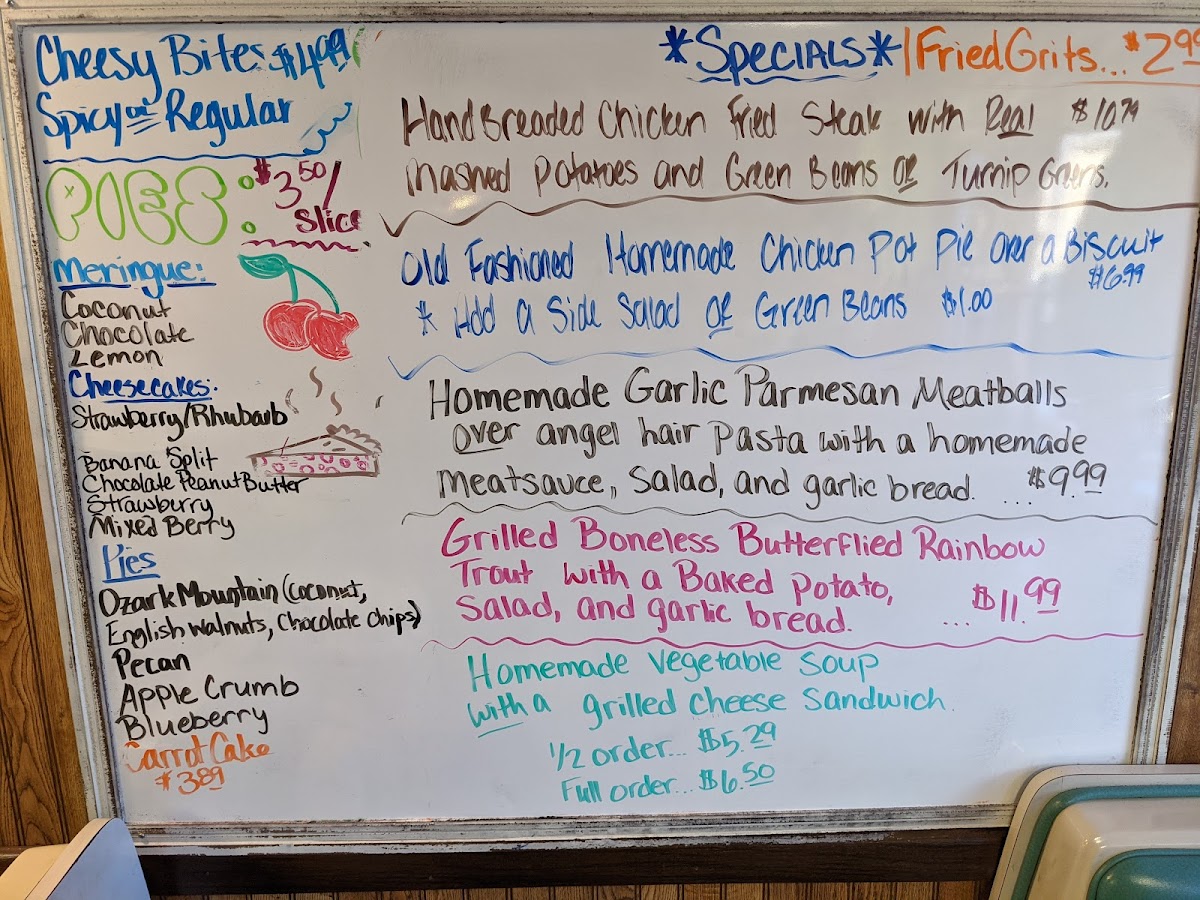 Cheesy Bites $4.99
Spicy or Regular
PIES: $3.50/
Slice
Meringue:
Coconut
Chocolate
Lemon
Cheesecakes:
Strawberry/Rhubarb
Banana Split
Chocolate Peanut Butter
Strawberry
Mixed Berry
Pies
Ozark Mountain (Coconut,
English Walnuts, Chocolate Chips)
Pecan
Apple Crumb
Blueberry
Carrot Cake
$3.89
*SPECIALS* | Fried Grits... $2.99
Hand Breaded Chicken Fried Steak with Real $10.79
Mashed Potatoes and Green Beans or Turnip Greens.
Old Fashioned Homemade Chicken Pot Pie over a Biscuit
$6.99
* Add a Side Salad or Green Beans $1.00
Homemade Garlic Parmesan Meatballs
over angel hair Pasta with a homemade
meatsauce, Salad, and garlic bread. ... $9.99
Grilled Boneless Butterflied Rainbow
Trout with a Baked Potato,
Salad, and garlic bread. ... $11.99
Homemade Vegetable Soup
with a grilled cheese Sandwich.
1/2 order... $5.29
Full order... $6.50